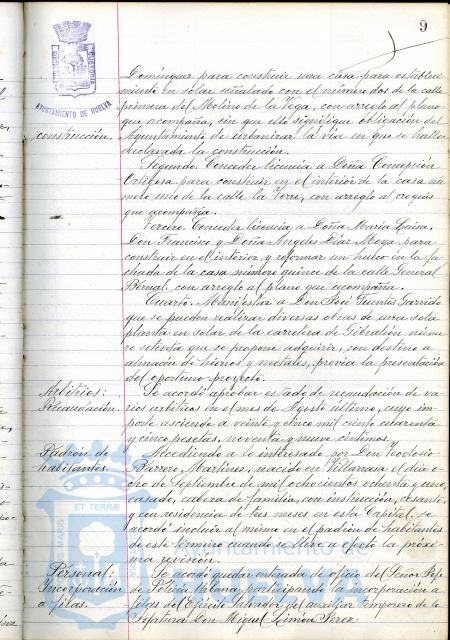 9
AYUNTAMIENTO DE HUELVA
Domínguez para construir una casa para estableci-
miento en solar señalado con el número dos de la calle
primera del Molino de la Vega, con arreglo al plano
que acompaña, sin que ello signifique obligación del
construcción.
Ayuntamiento de urbanizar la vía en que se halla
enclavada la construcción.
Segundo. Conceder licencia a Doña Concepción
Ortigosa para construir en el interior de la casa nú-
mero uno de la calle la Torre, con arreglo al croquis
que acompaña.
Tercero. Conceder licencia a Doña María Luisa,
Don Francisco y Doña Angeles Díaz Moya para
construir en el interior y reformar un hueco en la fa-
chada de la casa número quince de la calle General
Bernal, con arreglo al plano que acompaña.
Cuarto. Manifestar a Don José Fuentes Garrido
que se pueden realizar diversas obras de una sola
planta en solar de la carretera de Gibraleón núme-
ro setenta que se propone adquirir, con destino a
almacén de hierros y metales, previa la presentación
del oportuno proyecto.
Arbitrios:
Recaudación.
Se acordó aprobar estado de recaudación de va-
rios arbitrios en el mes de Agosto último, cuyo im-
porte asciende a veinte y cinco mil ciento cuarenta
y cinco pesetas, noventa y nueve céntimos.
Padrón de
habitantes.
Accediendo a lo interesado por Don Teodosio
Barrero Martínez, nacido en Villarrasa el día o-
cho de Septiembre de mil ochocientos ochenta y uno,
casado, cabeza de familia, con instrucción, cesante,
y con residencia de tres meses en esta Capital, se
acordó incluir al mismo en el padrón de habitantes
de este término cuando se lleve a efecto la próxi-
ma revisión.
Personal.
Incorporación
a filas.
Se acordó quedar enterada de oficio del Señor Jefe
de Policía Urbana participando la incorporación a
filas del Ejército Salvador del auxiliar temporero de la
Jefatura Don Miguel Limón Pérez
ET TERRÆ
MARIS
Ayuntamiento de
HUELVA